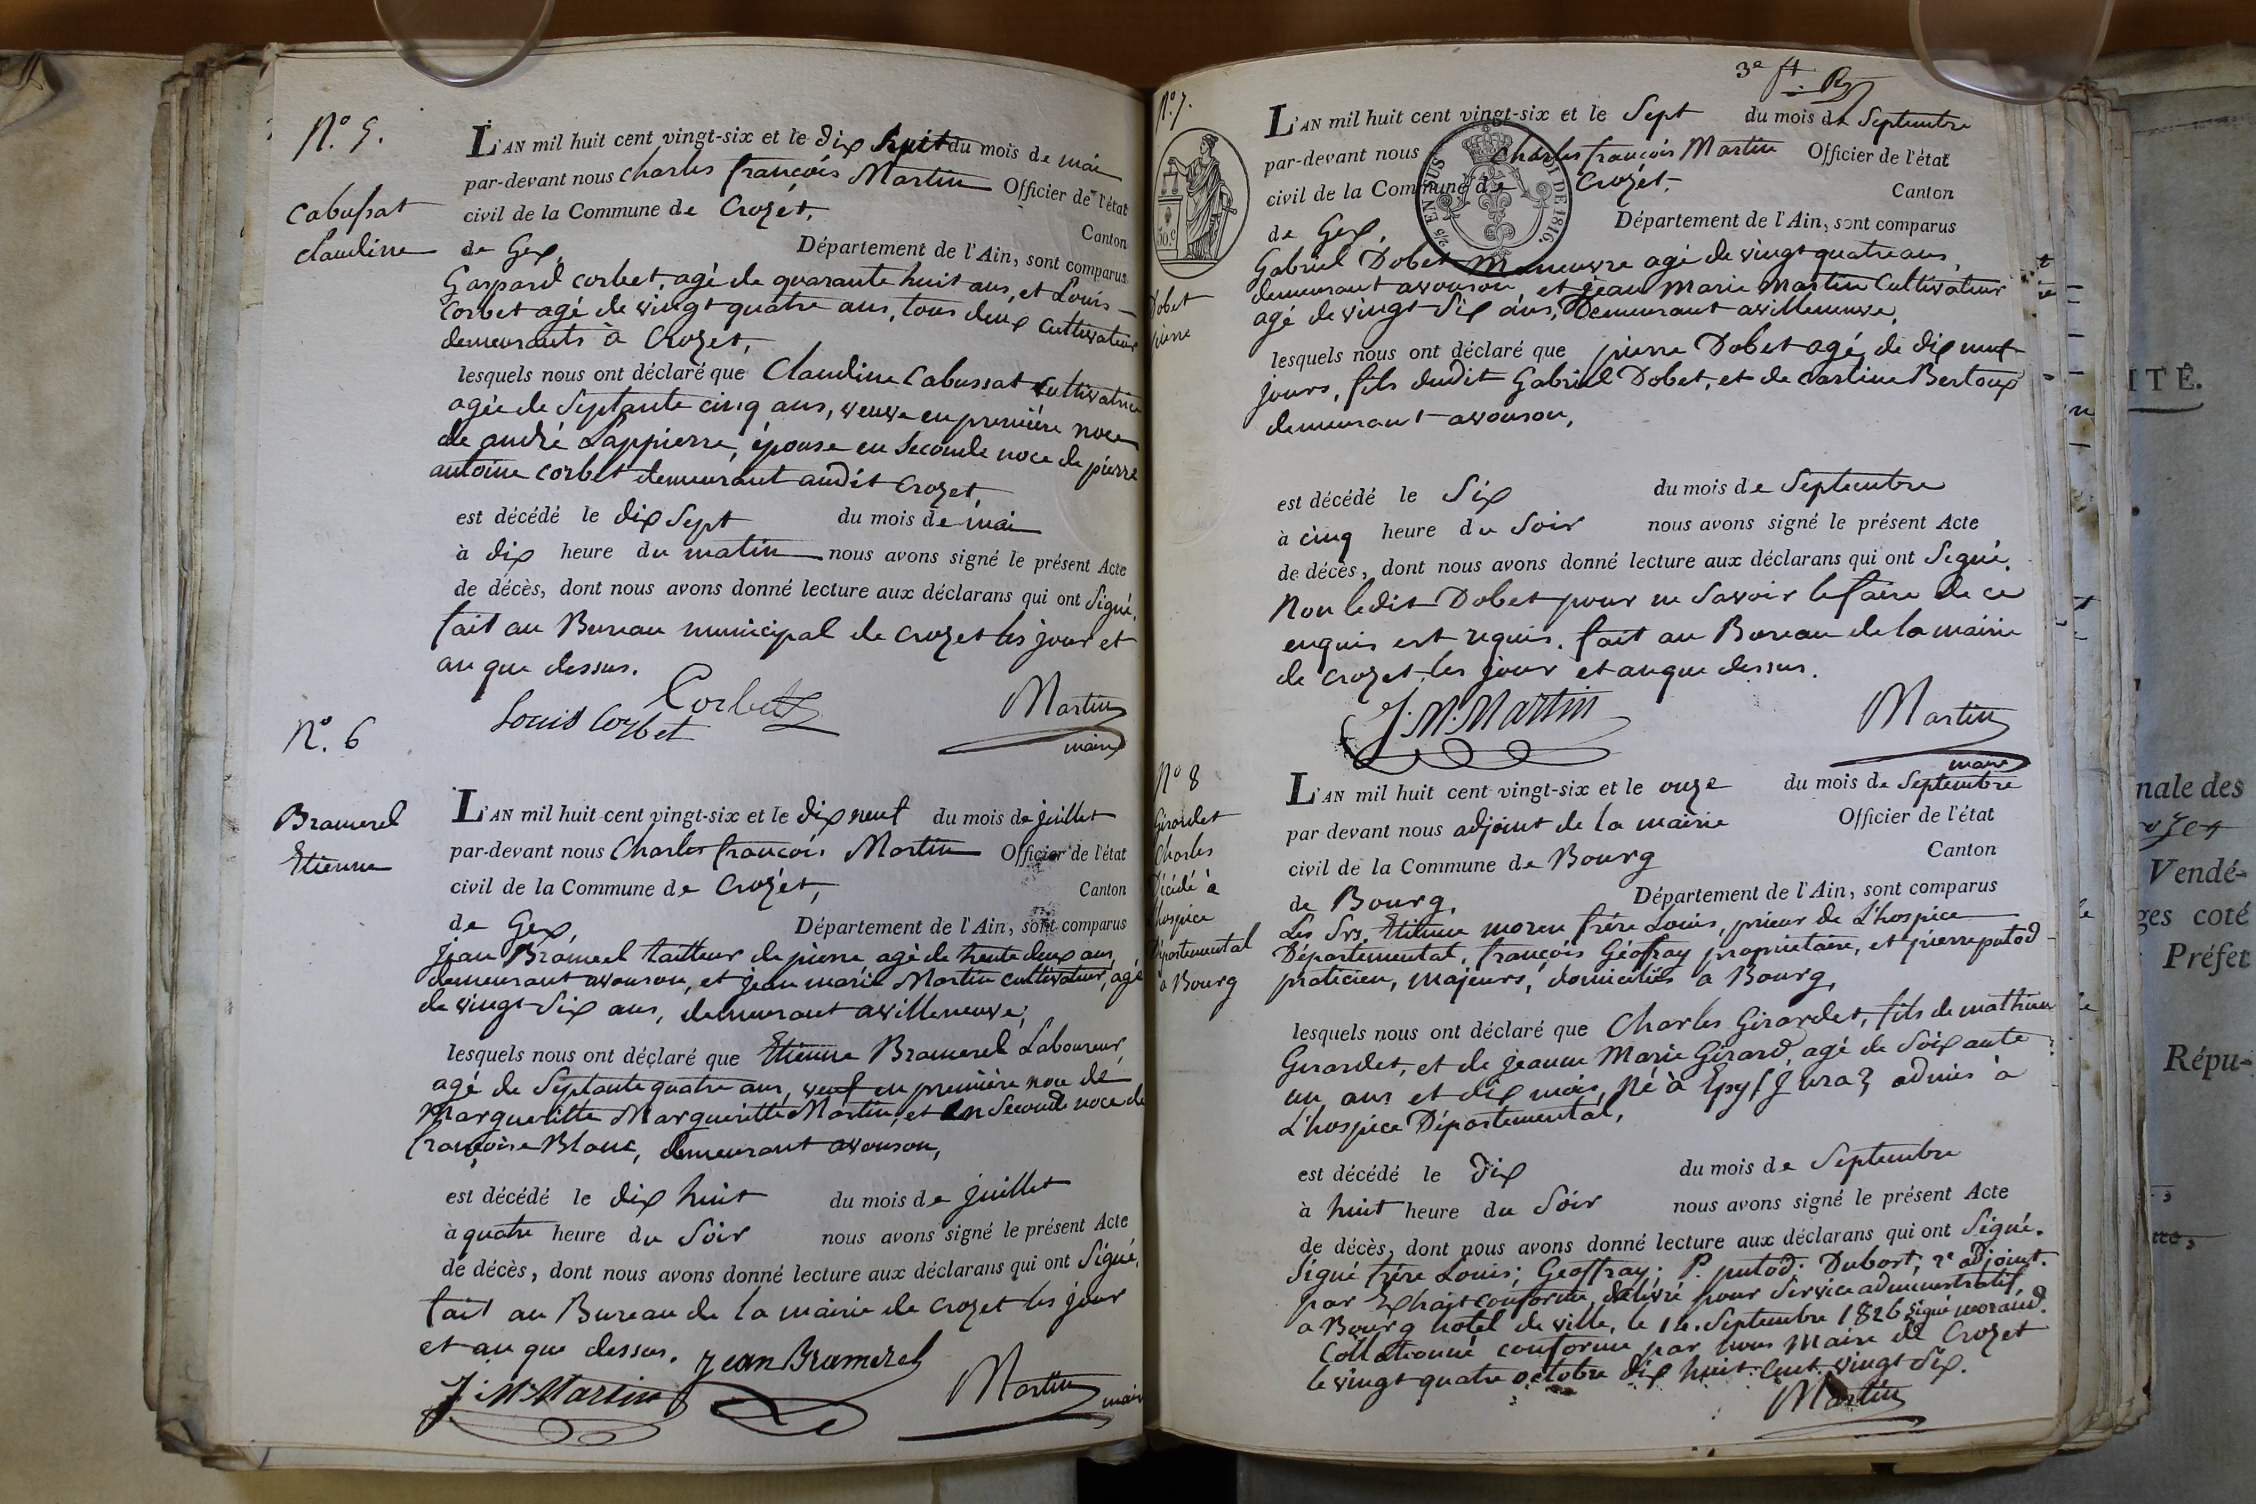 N.° 5.
Cabussat
claudine
L'AN mil huit cent vingt-six et le dix huit du mois de mai
par-devant nous Charles françois Martin Officier de l'état
civil de la Commune de Crozet, Canton
de Gex, Département de l'Ain, sont comparus
Gaspard corbet, agé de quarante huit ans, et Louis
Corbet agé de vingt quatre ans, tous deux cultivateur
demeurants à Crozet,
lesquels nous ont déclaré que Claudine Cabussat cultivatrice
agée de Septante cinq ans, veuve en première noce
de andré Lappierre, épouse en seconde noce de pierre
antoine corbet demeurant audit Crozet,
est décédé le dix sept du mois de mai
à dix heure du matin nous avons signé le présent Acte
de décès, dont nous avons donné lecture aux déclarans qui ont Signé.
fait au Bureau municipal de Crozet les jour et
an que dessus.
Corbet
Louis Corbet
Martin
maire
N.° 6
Bramerel
Etienne
L'AN mil huit cent vingt-six et le dix neuf du mois de juillet
par-devant nous Charles françois Martin Officier de l'état
civil de la Commune de Crozet, Canton
de Gex, Département de l'Ain, sont comparus
Jean Bramerel tailleur de pierre agé de trente deux ans,
demeurant avouson, et jean marie Martin cultivateur, agé
de vingt Six ans, demeurant avilleneuve,
lesquels nous ont déclaré que Etienne Bramerel Laboureur,
agé de Septante quatre ans, veuf en première noce de
Margueritte Margueritte Martin, et en Seconde noce de
françoise Blanc, demeurant avouson,
est décédé le dix huit du mois de juillet
à quatre heure du Soir nous avons signé le présent Acte
de décès, dont nous avons donné lecture aux déclarans qui ont Signé,
fait au Bureau de la mairie de crozet les jour
et an que dessus.
jean Bramerel
J. M. Martin
Martin
maire
3e
N.° 7.
30.c
Dobet
pierre
L'AN mil huit cent vingt-six et le Sept du mois de Septembre
par-devant nous Charles françois Martin Officier de l'état
civil de la Commune de Crozet, Canton
EN SUS
LOI DE 1816.
de Gex, Département de l'Ain, sont comparus
Gabriel Dobet Maneuvre agé de vingt quatre ans,
demeurant avouson, et jean Marie Martin Cultivateur
agé de vingt Six ans, Demeurant avilleneuve,
lesquels nous ont déclaré que pierre Dobet agé de dix neuf
jours, fils dudit Gabriel Dobet, et de
demeurant avouson,
est décédé le Six du mois de Septembre
à cinq heure du Soir nous avons signé le présent Acte
de décès, dont nous avons donné lecture aux déclarans qui ont Signé.
Non ledit Dobet pour ne Savoir le faire de ce
enquis est requis. fait au Bureau de la mairie
de crozet, les jour et an que dessus.
J. M. Martin
Martin
maire
N° 8
Girardet
Charles
Décédé à
l'hospice
Départemental
a Bourg
L'AN mil huit cent vingt-six et le onze du mois de Septembre
par devant nous adjoint de la mairie Officier de l'état
civil de la Commune de Bourg Canton
de Bourg, Département de l'Ain, sont comparus
Les Srs. Etienne moren frère Louis, prieur de L'hospice
Départemental, françois Géofray propriétaire, et pierre putod
praticien, majeurs, domiciliés a Bourg,
lesquels nous ont déclaré que Charles Girardet, fils de mathieu
Girardet, et de jeanne Marie Girard, agé de Soixante
un ans et dix mois, Né à Epy (Jura) admis à
L'hospice Départemental,
est décédé le Dix du mois de Septembre
à huit heure du Soir nous avons signé le présent Acte
de décès, dont nous avons donné lecture aux déclarans qui ont Signé.
Signé frère Louis; Geoffray; P. putod. Dubort, 2e adjoint.
par Extrait conforme, délivré pour Service administratif
a Bourg hotel de ville, le 14. Septembre 1826 signé morand.
Collationné conforme par nous Maire de Crozet
le vingt quatre octobre dix huit cent vingt Six.
Martin
ITÉ.
nale des
Vendé-
ges coté
Préfet
Répu-